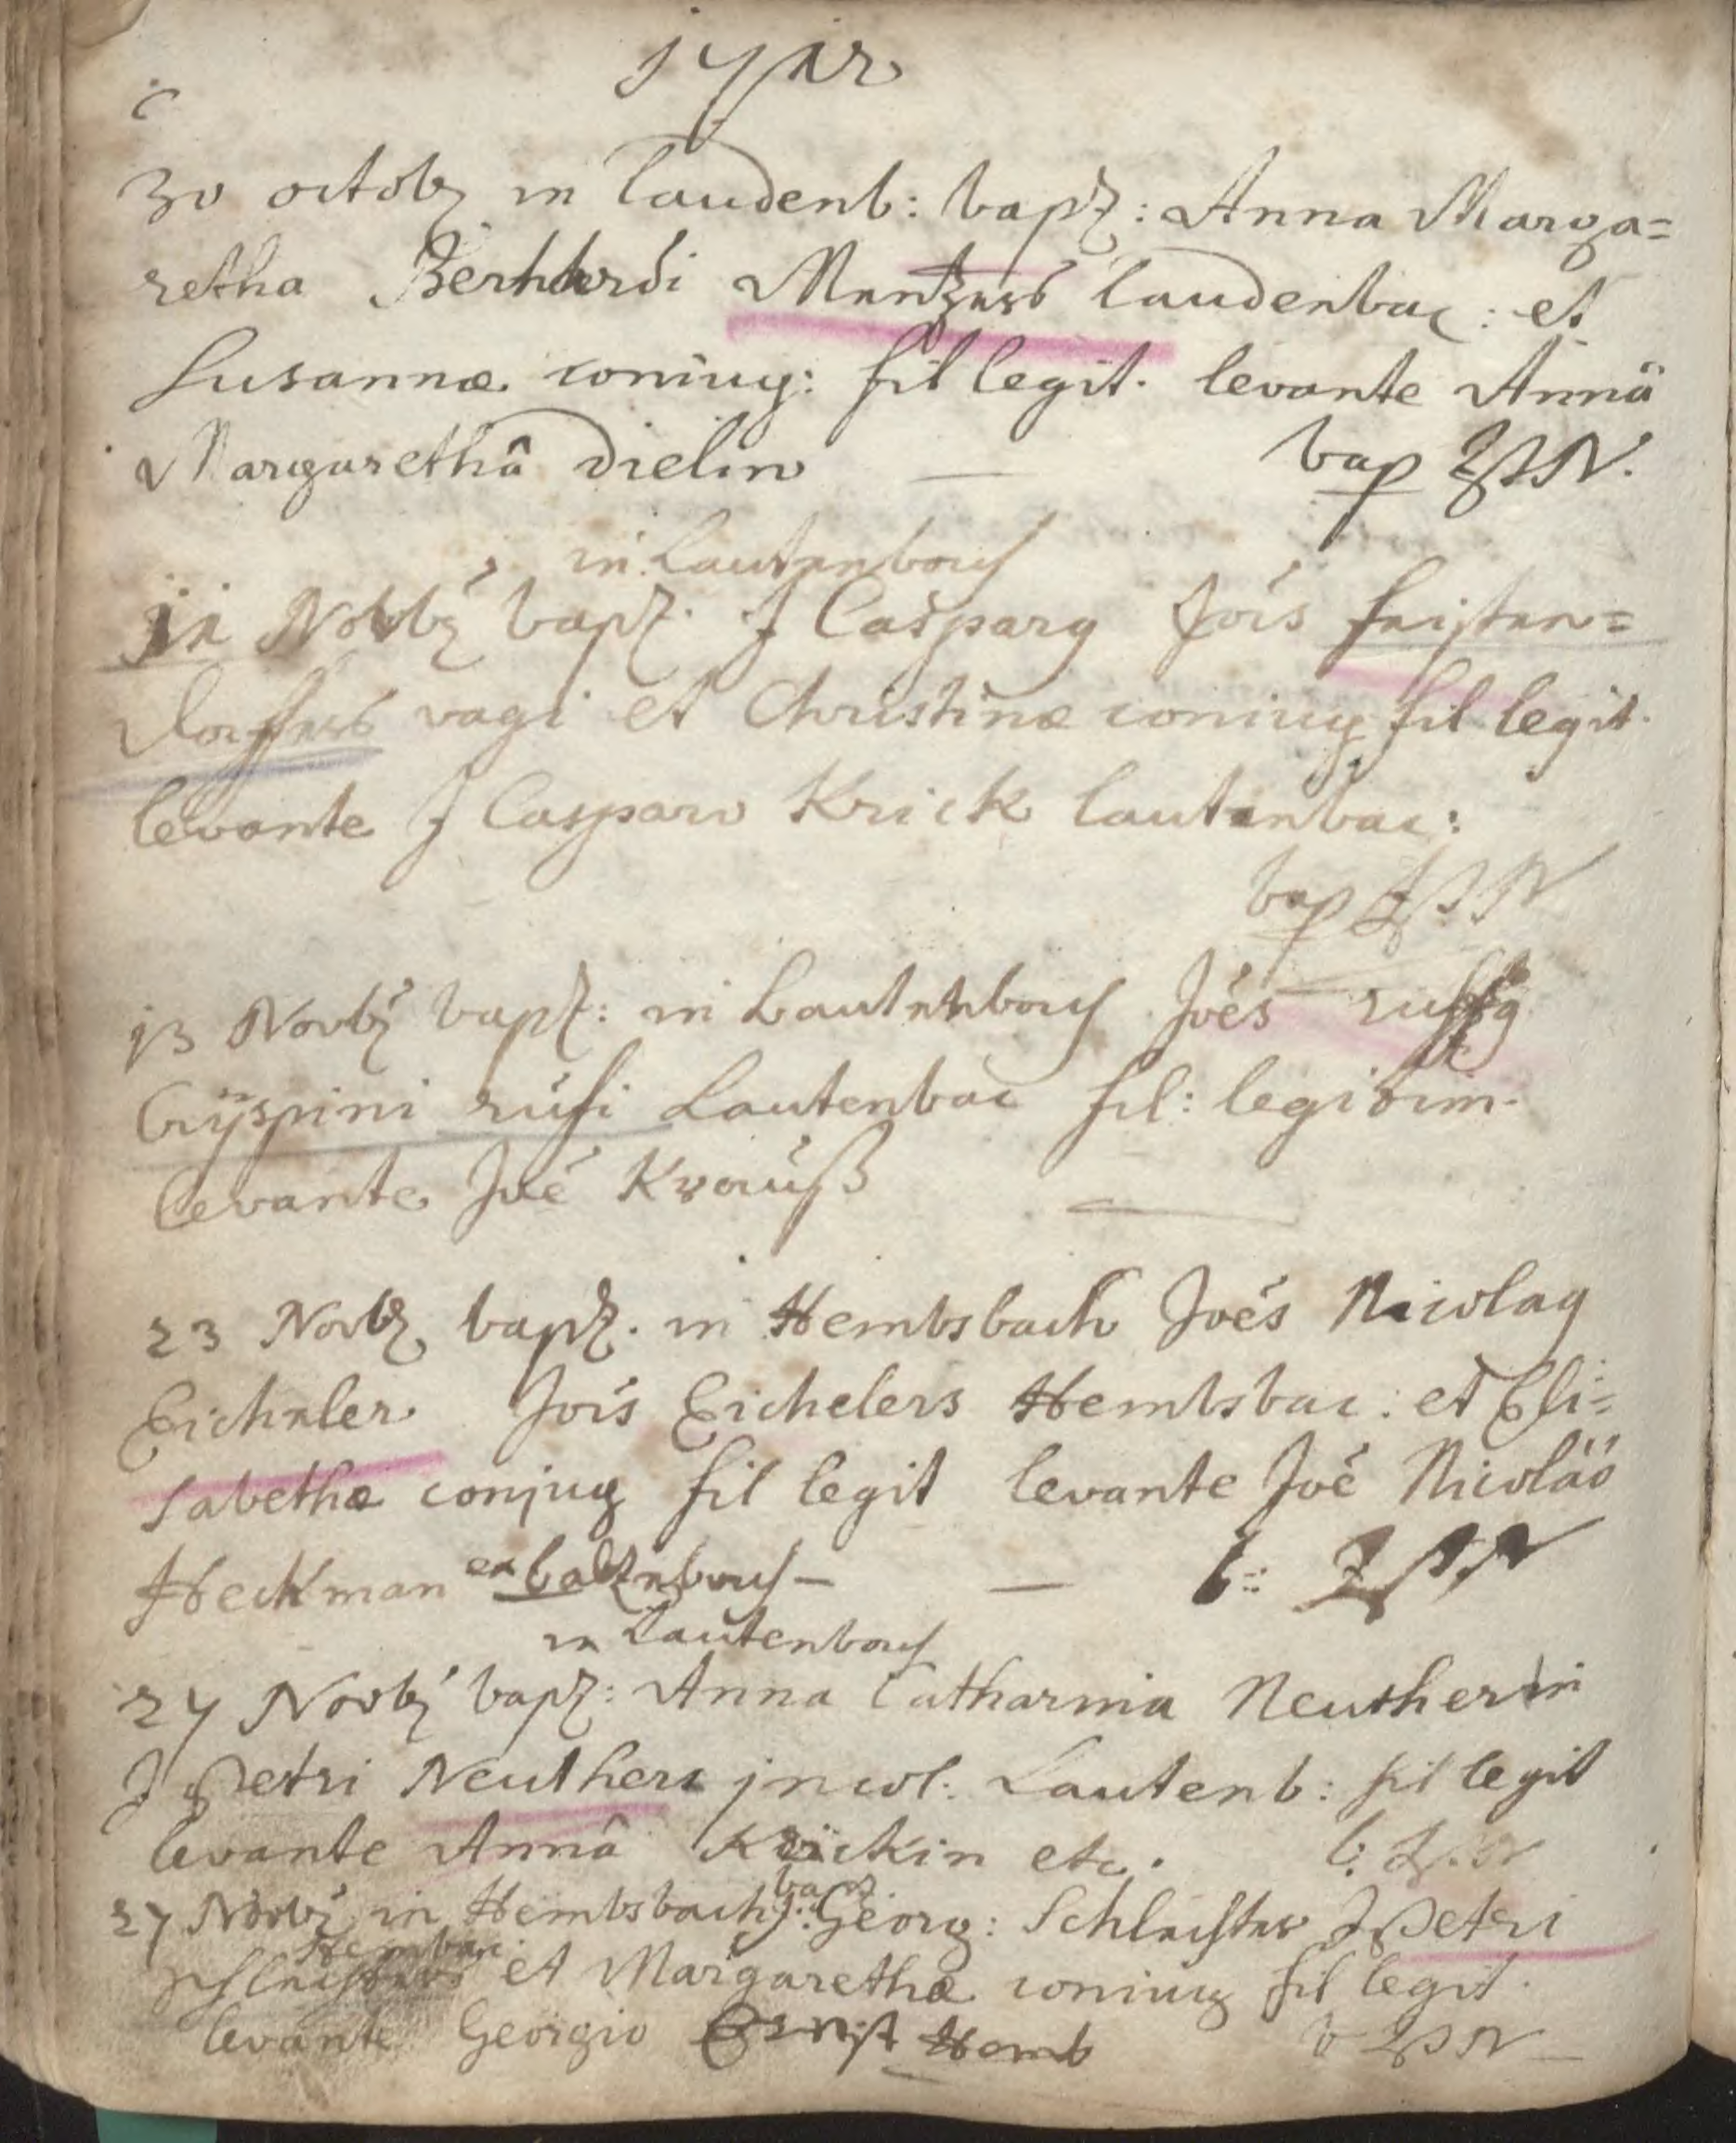 1712
30 octob in laudenb: bapt: Anna Marga=
retha Berhardi Mentzers laudenbac: et
Susannæ coniug: fil legit. levante Annâ
Margarethâ dielin — bap JPN.
in Lautenbach
11 Novb bapt. J Casparg Jois feisten=
dorffers vagi et Christinæ coniug fil legit.
levante J Casparo Krick lautenbac:
bap JPN
13 Novb bapt: in Lautenbach Joes ruffg
Cryspini rufi Lautenbac fil: legitim.
levante Joe Krauß —
23 Novb bapt. in Hembsbach Joes Nicolag
Eicheler Jois Eichelers Hembsbac: et Eli=
sabethæ conjug fil legit levante Joe Nicolao
Heckman ex Baltzenbach — — b: JPN
in Lautenbach
27 Novb bapt: Anna Catharina Neutherin
J Petri Neuthers jncol. Lautenb: fil legit
levante Annâ Krickin etc. b: JPN
27 Novb in Hembsbach bapt J: Georg: Schleister J Petri
Hembsbac:
schleisters et Margarethæ coniug fil legit.
levante Georgio Ernst Hemb b JPN